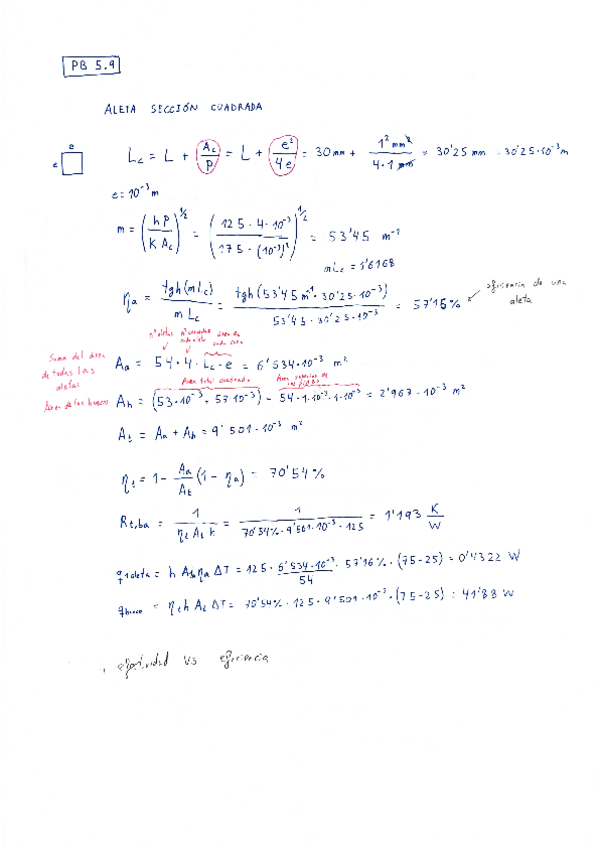 PB 5.9
ALETA SECCIÓN CUADRADA
e
e
Lc = L + Ac/P = L + e²/4e = 30 mm + 1² mm²/4·1 mm = 30'25 mm = 30'25·10⁻³ m
e = 10⁻³ m
m = (h P / K Ac)^1/2 = (125 · 4·10⁻³ / 175 · (10⁻³)²)^1/2 = 53'45 m⁻¹
m Lc = 1'6168
ηa = tgh(m Lc) / m Lc = tgh(53'45 m⁻¹ · 30'25·10⁻³) / 53'45 · 30'25·10⁻³ = 57'16%
eficiencia de una aleta
nº aletas
Suma del área de todas las aletas
Aa = 54 · 4 · Lc · e = 6'534·10⁻³ m²
Área total cuadrado
Área de los huecos
Ah = (53·10⁻³ · 57·10⁻³) − 54·1·10⁻³·1·10⁻³ = 2'967·10⁻³ m²
At = Aa + Ah = 9'501·10⁻³ m²
ηt = 1 − Aa/At (1 − ηa) = 70'54%
Rt,ba = 1 / ηt At h = 1 / 70'54% · 9'501·10⁻³ · 125 = 1'193 K/W
q1aleta = h ηa ΔT = 125 · 6'534·10⁻³/54 · 57'16% · (75−25) = 0'4322 W
= ηt h At ΔT = 70'54% · 125 · 9'501·10⁻³ · (75−25) = 41'88 W
efectividad vs eficiencia